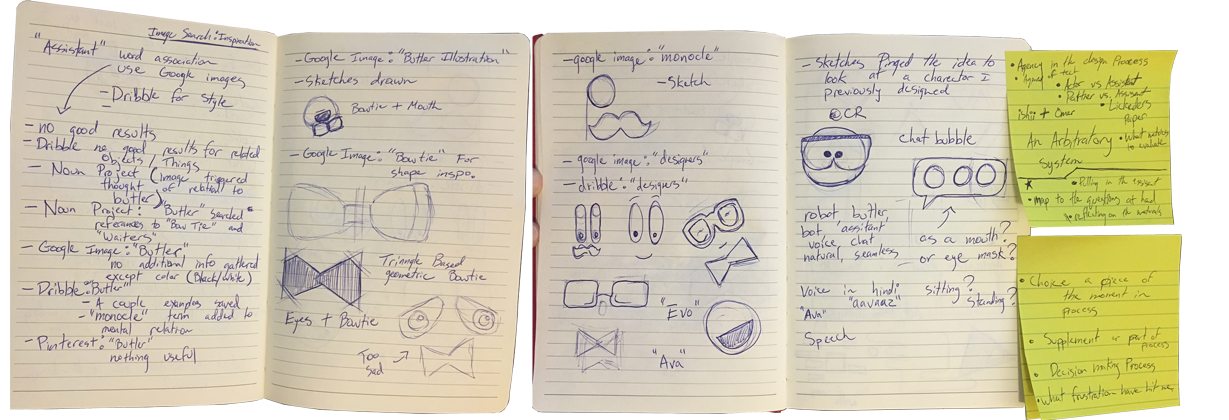 Image Search: Inspiration
"Assistant" word association
use Google images
- Dribble for style
- no good results
- Dribble no good results for related
objects / Things
- Noun Project (Image triggered
thought of relation to
butler)
- Noun Project: "Butler" searched
references to "Bow Tie" and
"Waiters"
- Google Image: "Butler"
no additional info gathered
except color (Black/white)
- Dribble: "Butler"
- A couple examples saved
- "monocle" term added to
mental relation
- Pinterest: "Butler"
nothing useful
- Google Image: "Butler Illustration"
- sketches drawn
Bowtie + Mouth
- Google Image: "Bowtie" For
shape inspo.
Triangle Based
geometric Bowtie
Eyes + Bowtie
Too
sad
- google image: "monocle"
- Sketch
- google image: "designers"
- dribble: "designers"
"Evo"
"Ava"
- Sketches Pinged the idea to
look at a charector I
previously designed
@CR
chat bubble
robot butler,
bot, assitant
voice, chat
natural, seamless
as a mouth?
or eye mask?
voice in hindi:
"aavaaz"
"Ava"
sitting?
standing?
Speech
• Agency in the design Process
• Agent of
• Actor vs Assistant
• Partner vs. Assistant
• Lickliders
Paper
An Arbitratory
system
• What
to evaluate
• map to the questions at hand
• reflecting on the methods
• Choice a piece of
the moment in
process
• Supplement or part of
process
• Decision making Process
• What frustration have hit me